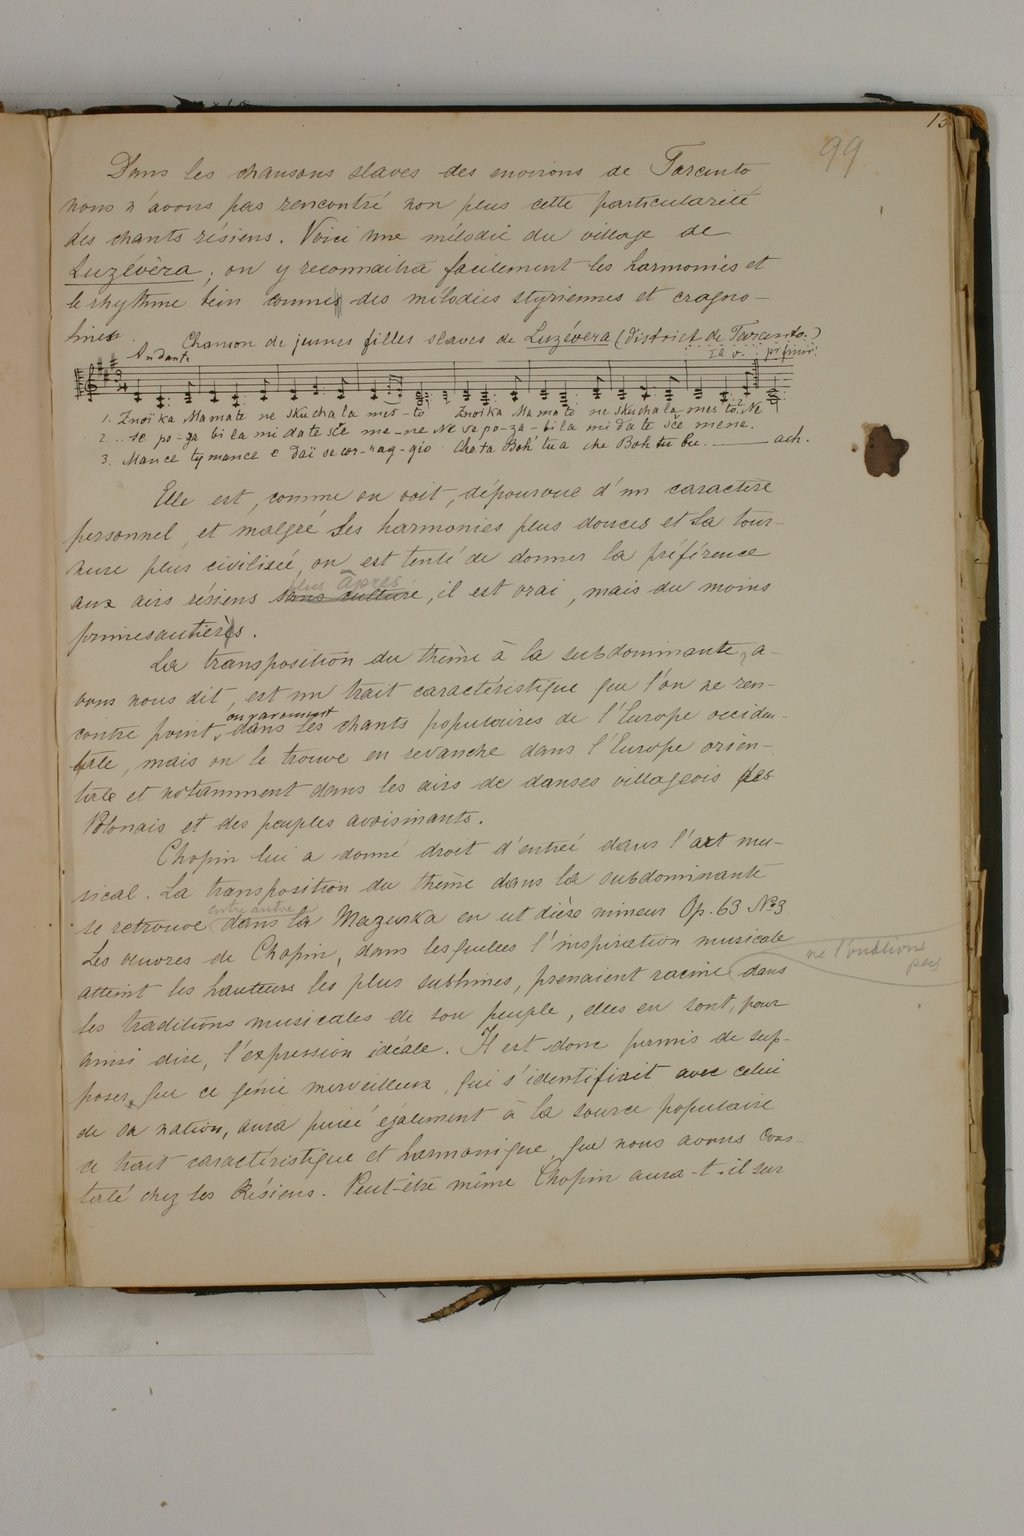 13
99
Dans les chansons slaves des environs de Tarcento
nous n'avons pas rencontré non plus cette particularité
des chants résiens. Voici une mélodie du village de
Luzévèra; on y reconnaitra facilement les harmonies et
le rhythme bien connus des mélodies styriennes et cragno-
lines.
Chanson de jeunes filles slaves de Luzévera (District de Tarcento.)
Andante
IIa v. pr finir.
1. Znoïka Mamate ne skuchala mes-to Znoika Mamate ne skuchala mesto? Ne
2. .. se po-za bila midate sče me-ne Ne se po-za-bila midate sče mene.
3. Mance ty mance e daï se cor-rag-gio Cheta Boh' tua che Boh tu be. ach.
Elle est, comme on voit, dépourvue d'un caractère
personnel, et malgré ses harmonies plus douces et sa tour-
nure plus civilisée, on est tenté de donner la préférence
plus âpres
aux airs résiens sans culture, il est vrai, mais du moins
primesautiers.
La transposition du thème à la subdominante, a-
vons nous dit, est un trait caractéristique que l'on ne ren-
ou rarement
contre point, dans les chants populaires de l'Europe occiden-
tale, mais on le trouve en revanche dans l'Europe orien-
tale et notamment dans les airs de danses villageois des
Polonais et des peuples avoisinants.
Chopin lui a donné droit d'entrée dans l'art mu-
sical. La transposition du thème dans la subdominante
entre autre
se retrouve dans la Mazurka en ut dièse mineur Op. 63 No 3
Les œuvres de Chopin, dans lesquelles l'inspiration musicale
atteint les hauteurs les plus sublimes, prenaient racine dans
ne
pas
les traditions musicales de son peuple, elles en sont, pour
ainsi dire, l'expression idéale. Il est donc permis de sup-
poser, que ce génie merveilleux, qui s'identifiait avec celui
de sa nation, aura puisé également à la source populaire
ce trait caractéristique et harmonique, que nous avons cons-
taté chez les Résiens. Peut-être même Chopin aura-t-il sur